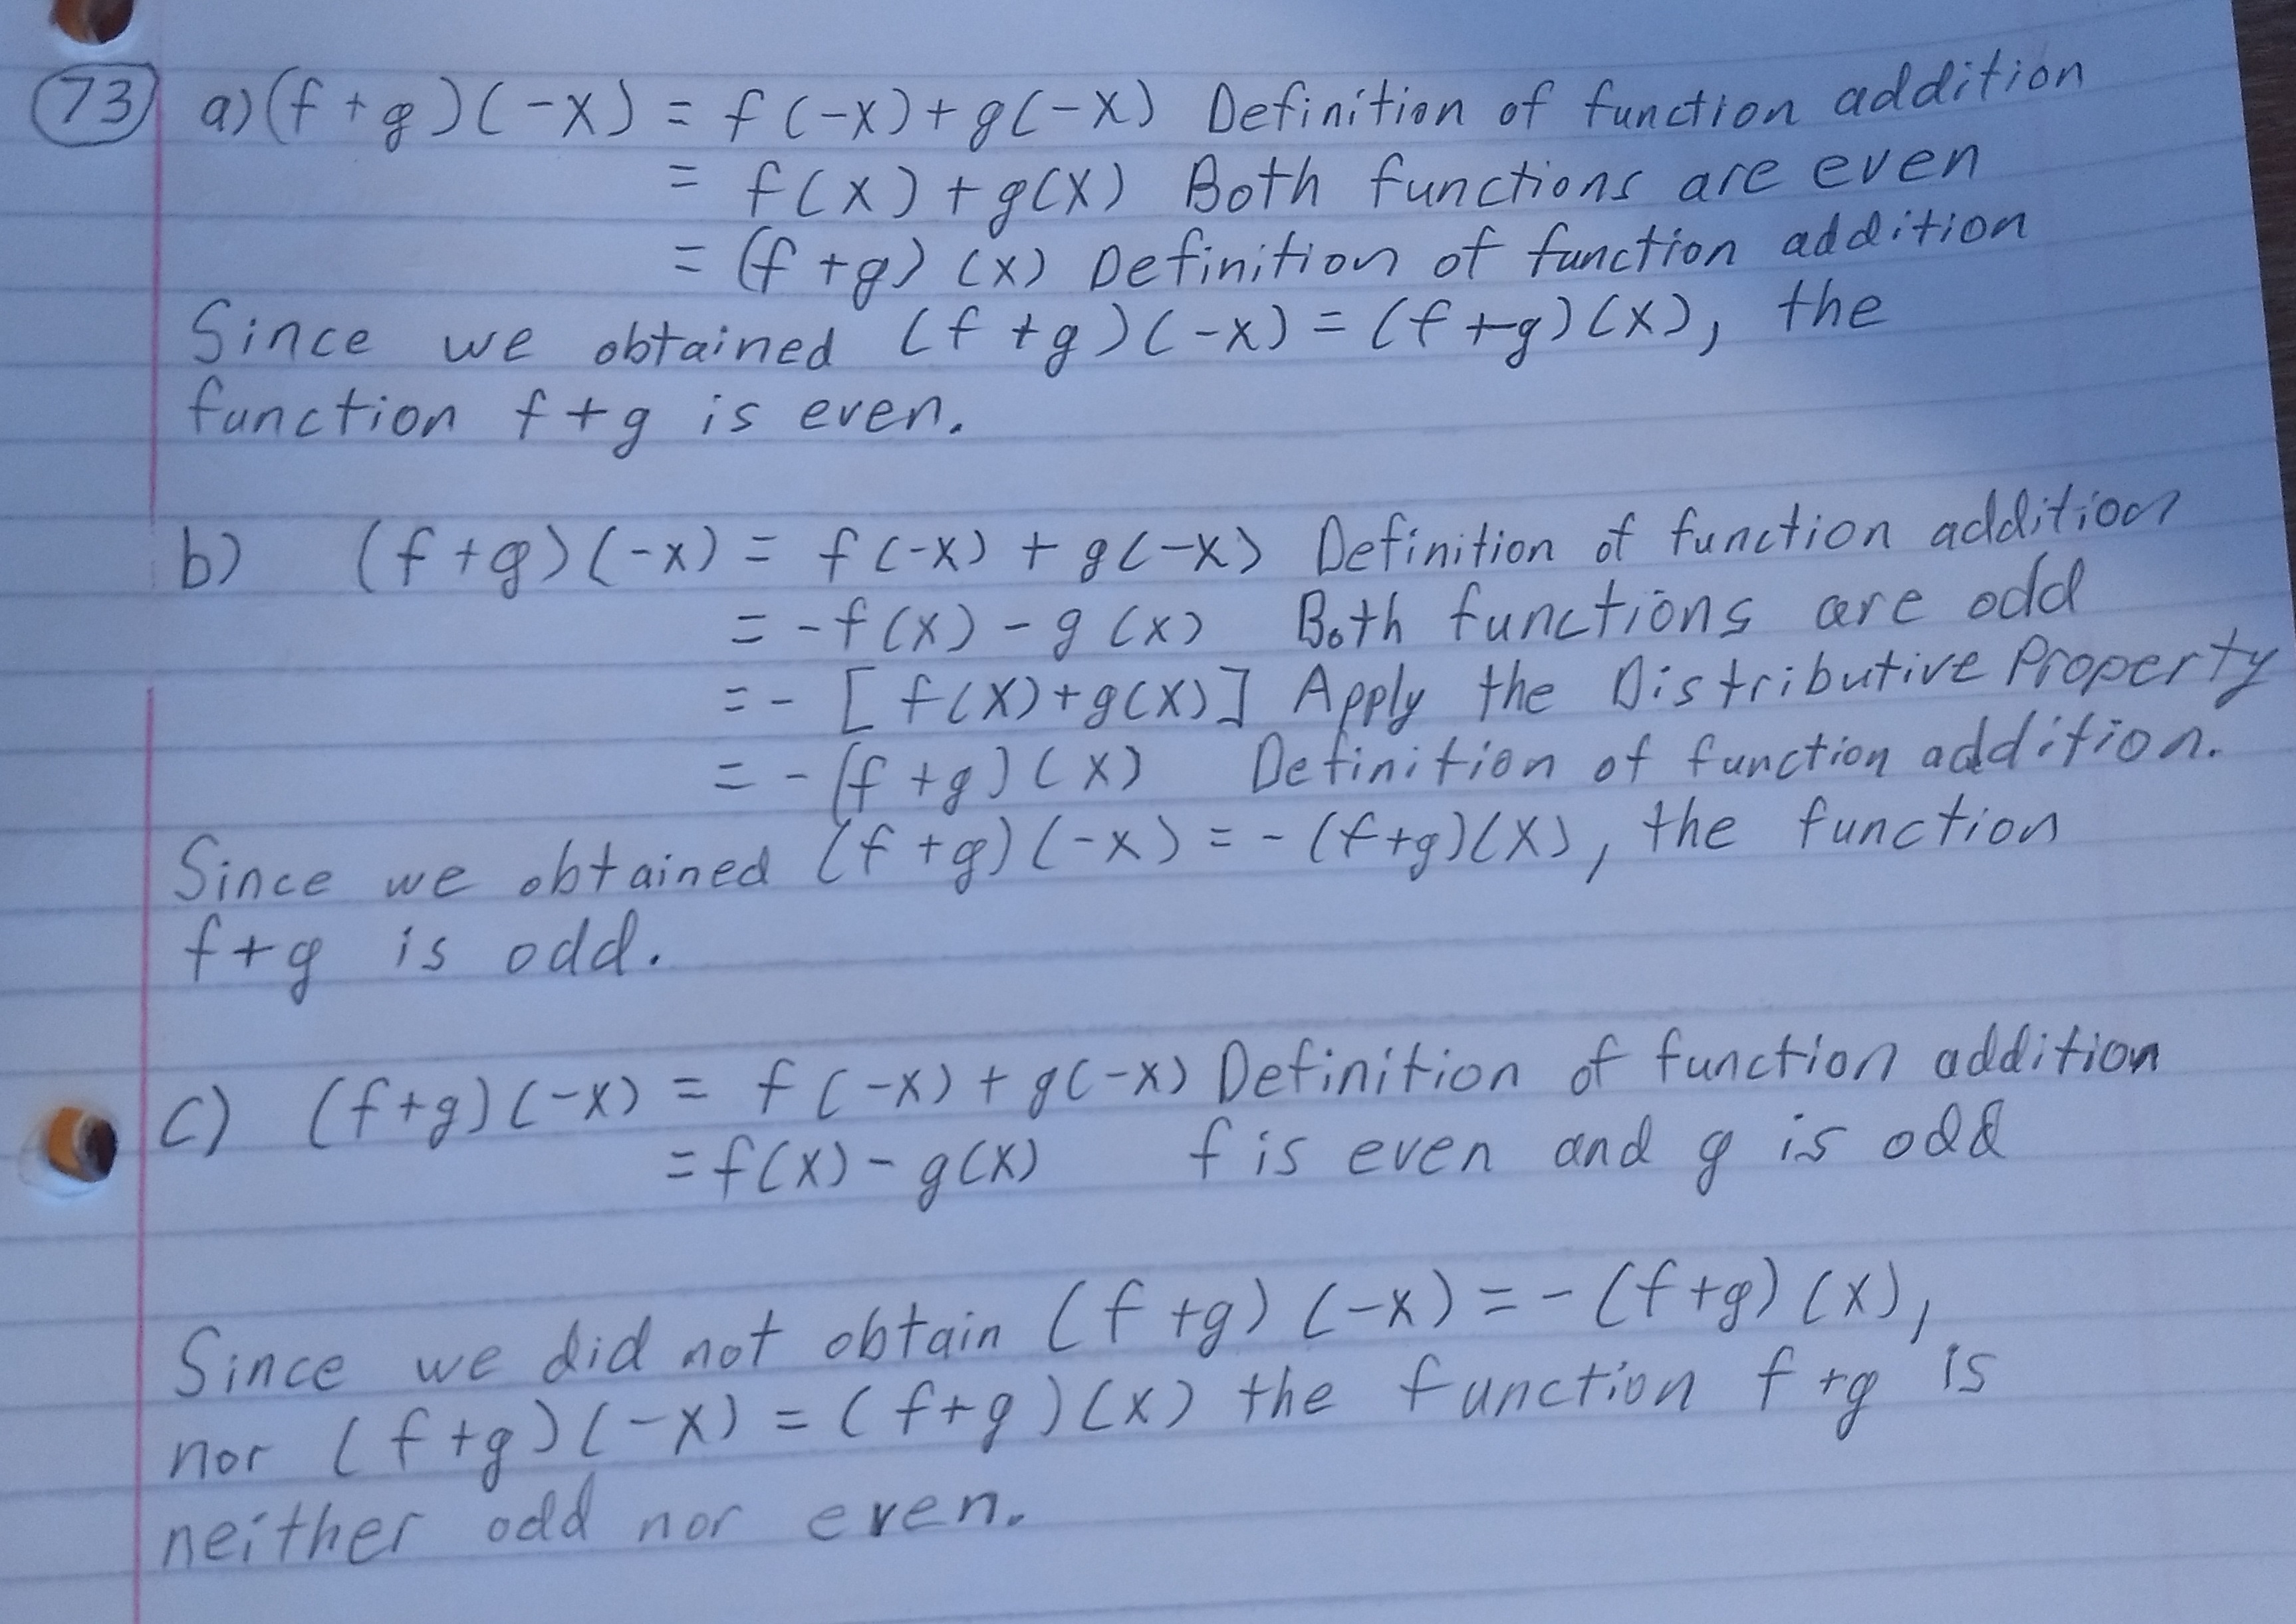 73 a) (f+g)(-x) = f(-x)+g(-x) Definition of function addition
= f(x)+g(x) Both functions are even
= (f+g)(x) Definition of function addition
Since we obtained (f+g)(-x) = (f+g)(x), the
function f+g is even.
b) (f+g)(-x) = f(-x) + g(-x) Definition of function addition
= -f(x) - g(x) Both functions are odd
= - [f(x)+g(x)] Apply the Distributive Property
= -(f+g)(x) Definition of function addition.
Since we obtained (f+g)(-x) = -(f+g)(x), the function
f+g is odd.
c) (f+g)(-x) = f(-x)+g(-x) Definition of function addition
= f(x) - g(x) f is even and g is odd
Since we did not obtain (f+g)(-x) = -(f+g)(x),
nor (f+g)(-x) = (f+g)(x) the function f+g is
neither odd nor even.